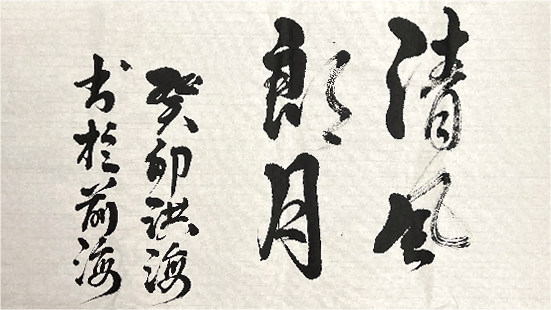 清风
朗月
癸卯洪海
书于前海